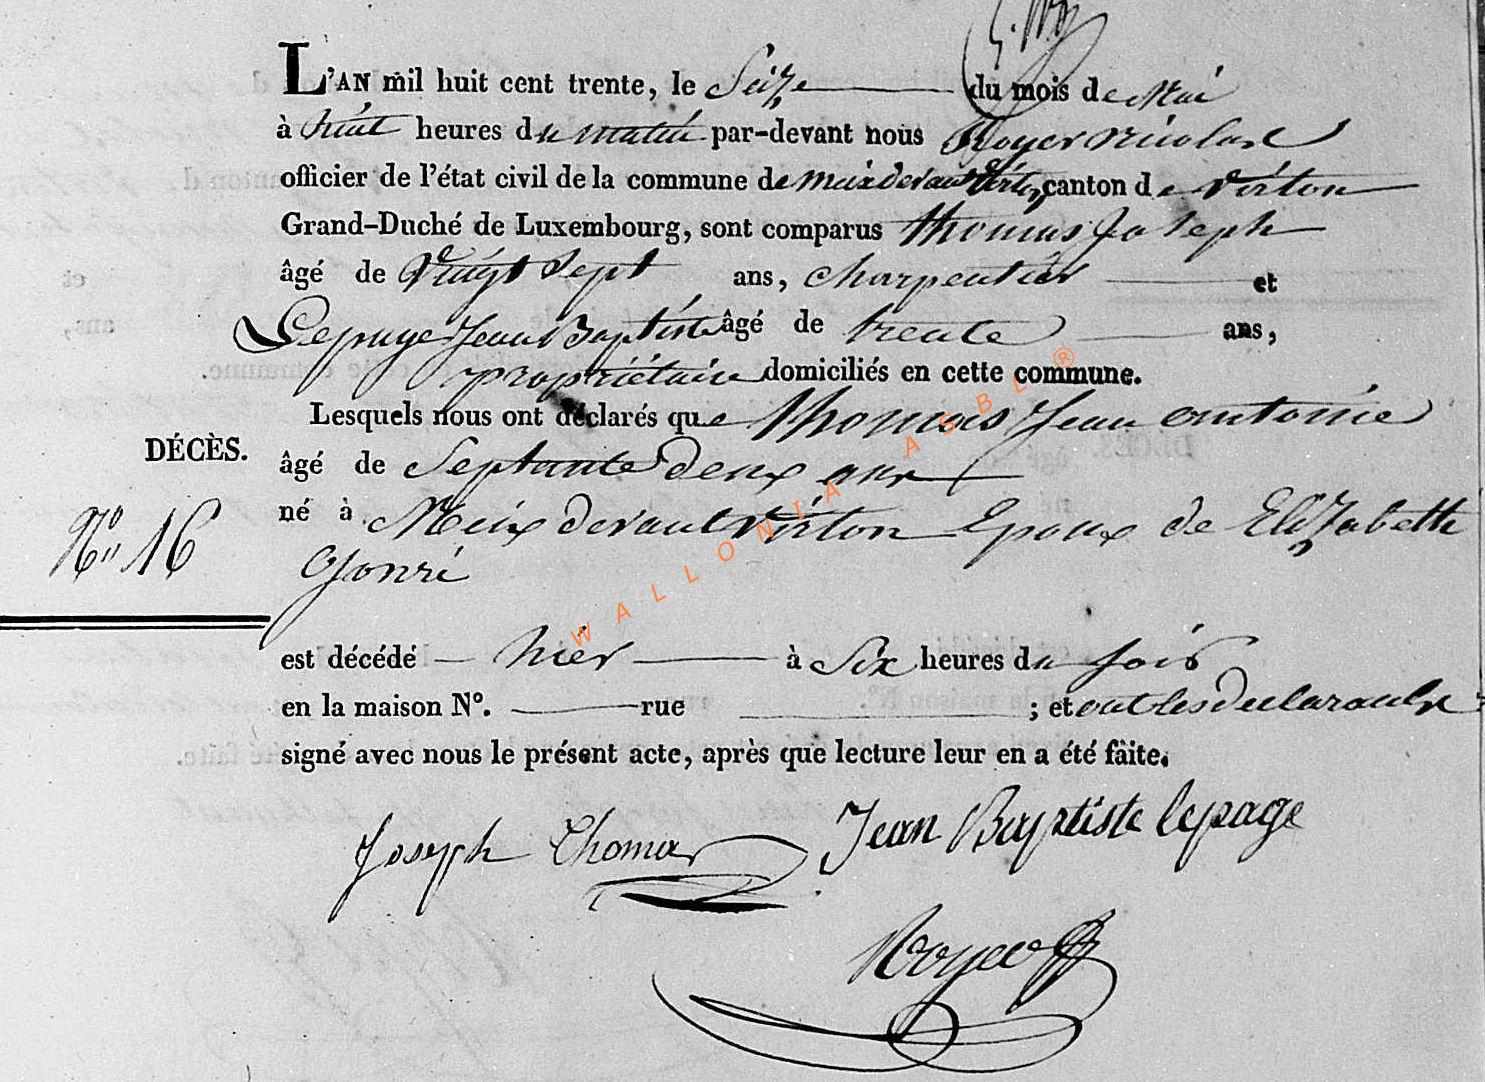 L'AN mil huit cent trente, le Seize du mois de Mai
à huit heures du matin par-devant nous Royer nicolas
officier de l'état civil de la commune de meix devant Virton, canton de Virton
Grand-Duché de Luxembourg, sont comparus thomas Joseph
âgé de Vingt Sept ans, charpentier et
Lepage Jean Baptiste âgé de trente ans,
propriétaire domiciliés en cette commune.
Lesquels nous ont déclarés que thomas Jean antoine
DÉCÈS. âgé de Septante deux ans
né à Meix devant Virton Epoux de Elizabette
N° 16 Gonri
est décédé hier à Six heures du soir
en la maison N°. rue ; et ont les declarants
signé avec nous le présent acte, après que lecture leur en a été faite.
Joseph Thomas Jean Baptiste lepage
Royer
WALLONIA ASBL ®